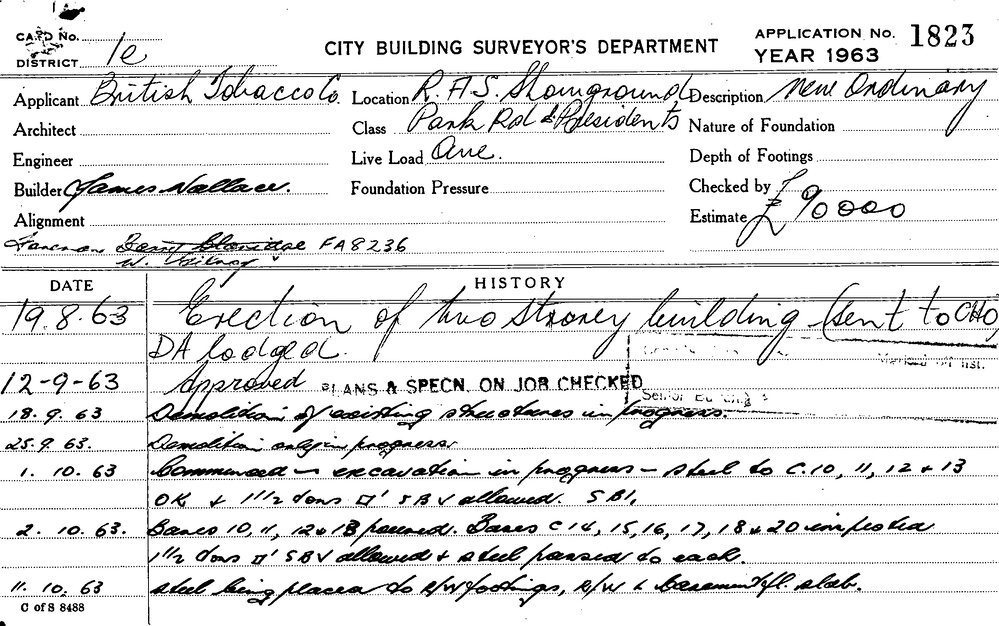 CARD No.
DISTRICT 1e
CITY BUILDING SURVEYOR'S DEPARTMENT
APPLICATION No. 1823
YEAR 1963
Applicant British Tobacco Co. Location R.A.S. Showground Description New Ordinary
Architect Class Park Rd & Presidents Nature of Foundation
Engineer Live Load Ave. Depth of Footings
Builder James Wallace. Foundation Pressure Checked by
Alignment Estimate £ 90000
Foreman FA8236
W.
DATE HISTORY
19.8.63 Erection of two storey building (sent to CHO
DA lodged.
12-9-63 Approved PLANS & SPECN. ON JOB CHECKED
18.9.63 Demolition of existing structures in progress.
25.9.63. Demolition only in progress.
1.10.63 Commenced - excavation in progress - steel to C.10, 11, 12 & 13
OK & 1 1/2 tons □' SBV allowed. SB1,
2.10.63. Bases 10, 11, 12 & 13 poured. Bases C14, 15, 16, 17, 18 & 20 inspected
1 1/2 tons □' SBV allowed & steel passed to each.
11.10.63 steel being placed to R/W footings, R/W & basement fl. slab.
C of S 8488